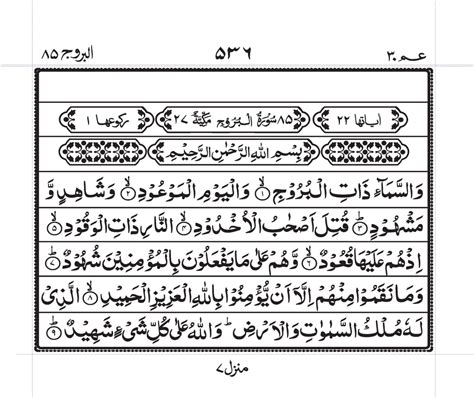 البروج ٨٥ ٥٣٦ عم ٣٠
اٰیاتها ٢٢ ٨٥ سُوْرَةُ الْبُرُوْجِ مَكِّیَّةٌ ٢٧ رکوعها ١
بِسْمِ اللّٰهِ الرَّحْمٰنِ الرَّحِیْمِ
وَالسَّمَآءِ ذَاتِ الْبُرُوْجِ ۙ﴿١﴾ وَالْیَوْمِ الْمَوْعُوْدِ ۙ﴿٢﴾ وَشَاهِدٍ وَّ
مَشْهُوْدٍ ؕ﴿٣﴾ قُتِلَ اَصْحٰبُ الْاُخْدُوْدِ ۙ﴿٤﴾ النَّارِ ذَاتِ الْوَقُوْدِ ۙ﴿٥﴾
اِذْ هُمْ عَلَیْهَا قُعُوْدٌ ۙ﴿٦﴾ وَّهُمْ عَلٰی مَا یَفْعَلُوْنَ بِالْمُؤْمِنِیْنَ شُهُوْدٌ ؕ﴿٧﴾
وَمَا نَقَمُوْا مِنْهُمْ اِلَّاۤ اَنْ یُّؤْمِنُوْا بِاللّٰهِ الْعَزِیْزِ الْحَمِیْدِ ۙ﴿٨﴾ الَّذِیْ
لَهٗ مُلْكُ السَّمٰوٰتِ وَالْاَرْضِ ؕ وَاللّٰهُ عَلٰی كُلِّ شَیْءٍ شَهِیْدٌ ؕ﴿٩﴾
منزل ٧